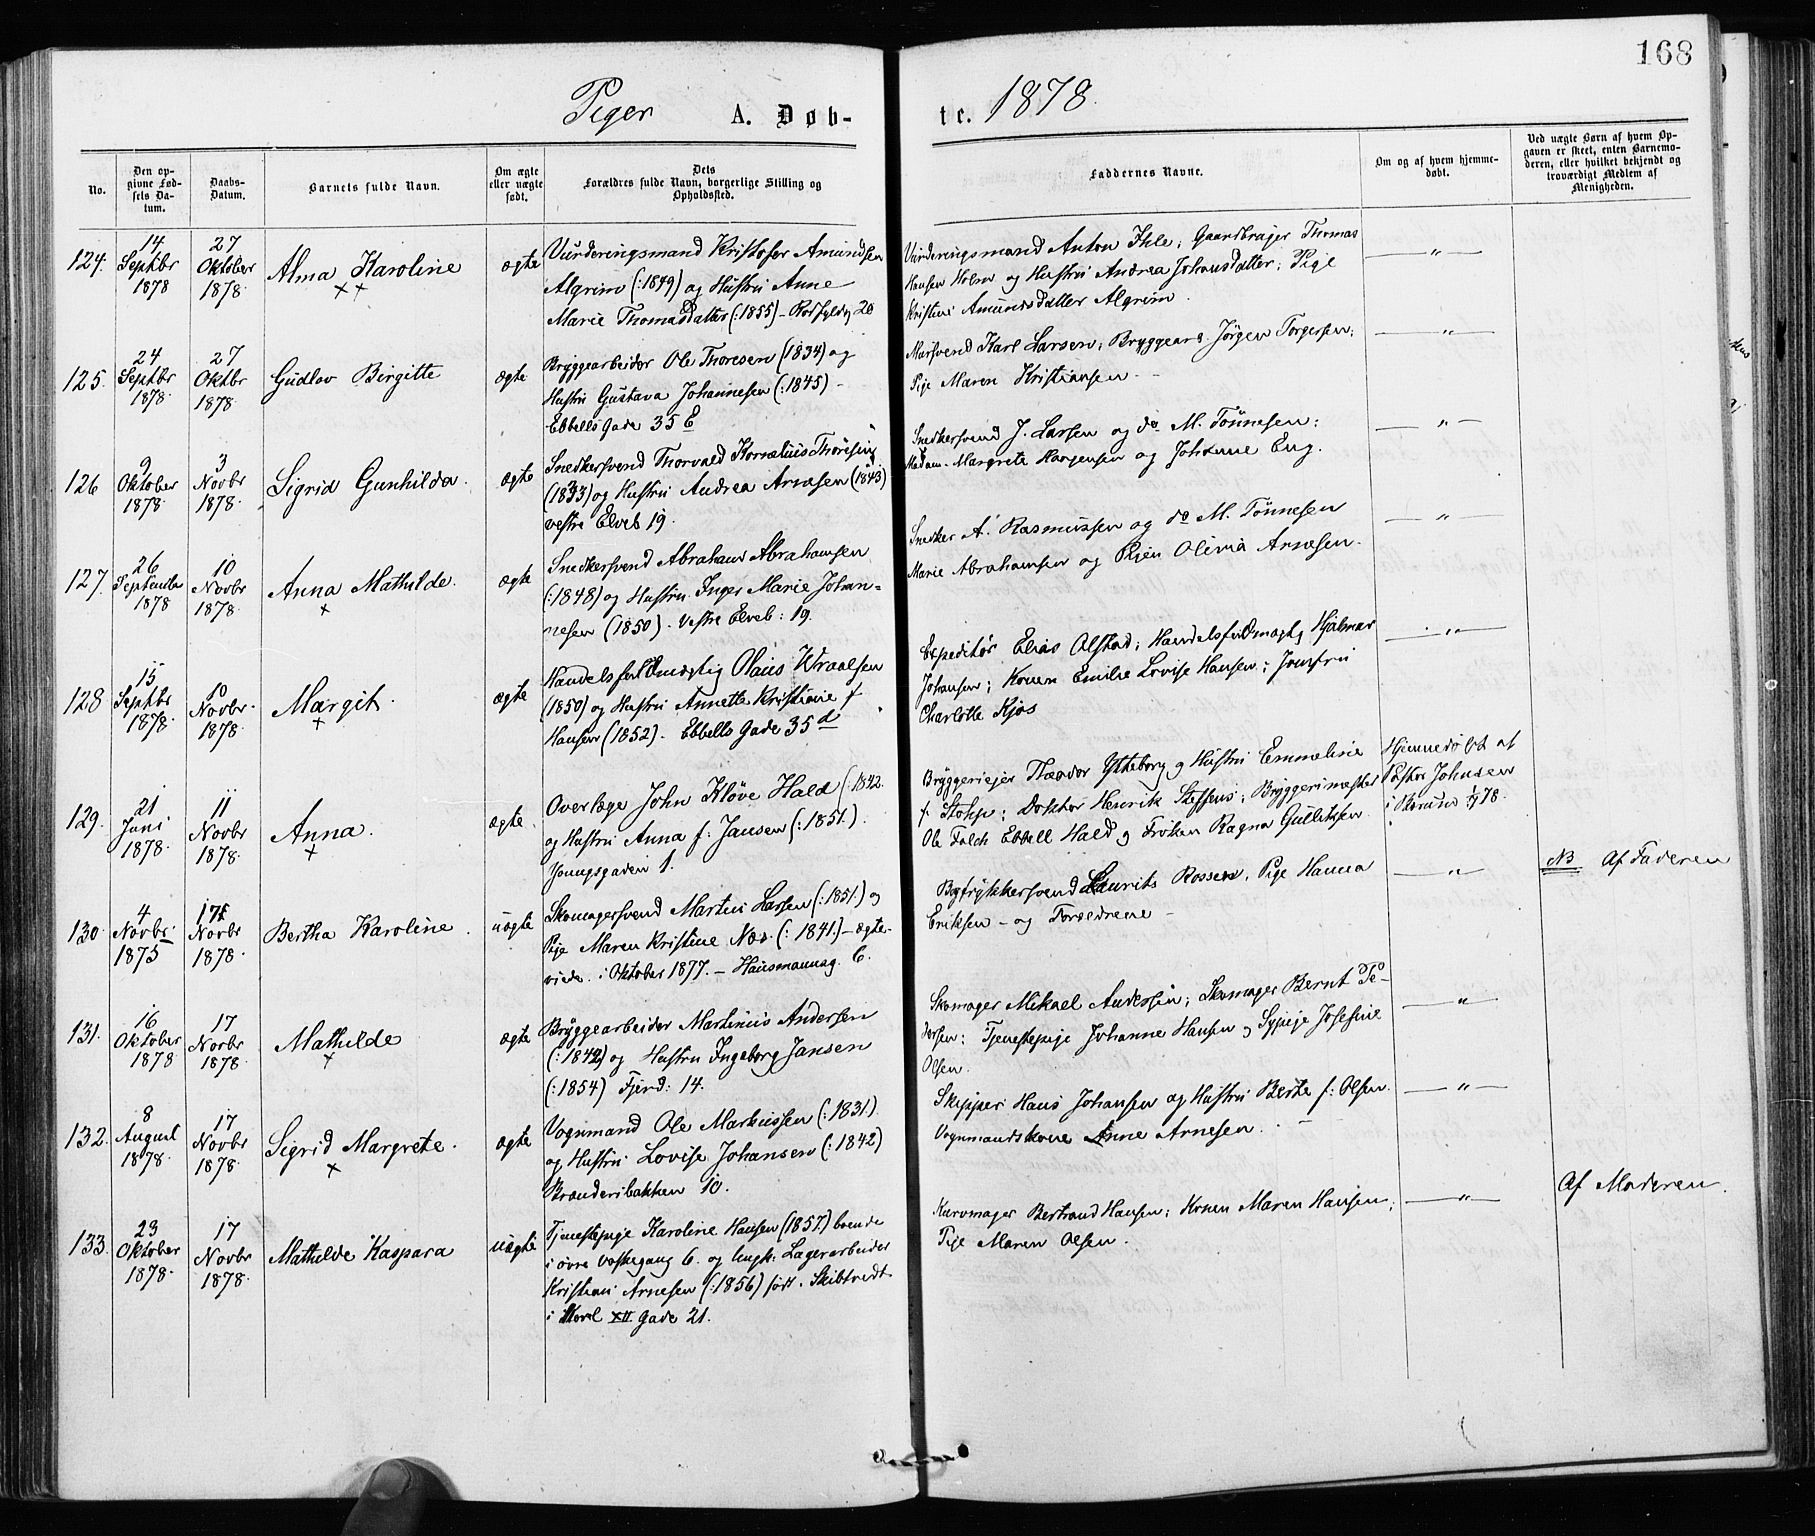 168
Piger A. Døb-
te. 1878.
No.
Den op-
givne Fød-
sels Da-
tum.
Daabs-
Datum.
Barnets fulde Navn.
Om ægte
eller uægte
født.
Dets
Forældres fulde Navn, borgerlige Stilling og
Opholdssted.
Faddernes Navne.
Om og af hvem hjemme-
døbt.
Ved uægte Børn af hvem Op-
gaven er skeet, enten Barnemo-
deren, eller hvilket bekjendt og
troværdigt Medlem af
Menigheden.
124.
14
Septbr
1878
27
Oktober
1878.
Alma Karoline
× ×
ægte
Vurderingsmand Kristofer Amundsen
Algrim (:1849) og Hustru Anne
Marie Thomasdatter (:1855) - Rodfyldg 20
Vurderingsmand Anton Ihle; Gaardbruger Thomas
Hansen Holm og Hustru Andrea Johansdatter; Pige
Kristine Amundsdatter Algrim.
— " —
125.
24
Septbr
1878.
27
Oktbr
1878.
Gudlov Birgitte
ægte
Bryggearbeider Ole Thoresen (1834) og
Hustru Gustava Johannesen (:1845) -
Ebbells Gade 35 E
Karl Larsen; Bryggearb. Jörgen Torgersen;
Pige Maren Kristiansen -
— " —
126
9
Oktober
1878.
3
Novbr
1878.
Sigrid Gunhilda.
ægte
Snedkersvend Thorvald Kornelius Thoresen
(1833) og Hustru Andrea Arnesen (1843)
vestre Elveb 19.
Snedkersvend J. Larsen og do M. Tönnesen;
Madam Margrete Haagensen og Johanne Eng.
— " —
127.
26
Septembr
1878
10
Novbr
1878.
Anna Mathilde.
×
ægte
Snedkersvend Abraham Abrahamsen
(:1848) og Hustru Inger Marie Johan-
nesen (1850). Vestre Elveb: 19.
Snedker A. Rasmussen og do M. Tönnesen
Marie Abrahamsen og Pigen Olivia Arnesen.
— " —
128
15
Septbr
1878.
10
Novbr.
1878.
Margit.
×
ægte
Handelsfuldmægtig Olaus Wraalsen
(1850) og Hustru Annette Kristiane f
Hansen (1852). Ebbells Gade 35 d
Expeditör Elias Olstad; Handelsfuldmægtg Hjalmar
Johansen; Konen Emilie Lovise Hansen; Jomfru
Charlotte Kjos
— " —
129.
21
Juni
1878.
11
Novbr
1878.
Anna.
×
ægte.
Overlæge John Klöve Hald (:1842.
og Hustru Anna f: Jansen (:1851.)
Youngsgaden 1.
Bryggerieier Theodor Ytteborg og Hustru Emmeline
f Stohp; Doktor Henrik Steffens; Bryggerimester
Ole Falch Ebbell Hald og Fröken Ragna Gulliksen
Hjemmedöbt af
Pastor Johnsen
78.
130.
4
Novbr.
1875
17
Novbr
1878.
Bertha Karoline.
uægte
Skomagersvend Martin Larsen (:1851.) og
Pige Maren Kristine Næs (:1841.) - ægte-
viede i Oktober 1877. - Hausmannsg. 6.
Bogtrykkersvend Laurits Rossen, Pige Hanna
Eriksen - og Forældrene -
— " —
NB Af Faderen
131.
16
Oktober
1878
17
Novbr
1878.
Mathilde
×
ægte
Bryggearbeider Martinus Andersen
(:1842) og Hustru Ingeborg Jansen
(:1854) Fjerd: 14.
Skomager Mikael Andersen; Skomager Bernt Pe-
dersen; Tjenestepige Johanne Hansen og Sypige Josefine
Olsen.
— " —
132.
8
August
1878.
17
Novbr
1878.
Sigrid Margrete.
×
ægte
Vognmand Ole Markussen (:1831.)
og Hustru Lovise Johansen (:1842)
Brænderibakken 10.
Skipper Hans Johansen og Hustru Berte f: Olsen.
Vognmandskone Anne Arnesen.
— " —
133.
23
Oktober
1878.
17
Novbr
1878.
Mathilde Kaspara
uægte
Tjenestepige Karoline Hansen (1857.) boende
i övre Voskegang 6. og Ungk: Lagerarbeider
Kristian Arnesen (:1856) födt. Skibtvedt
i XII Gade 21.
Kurvmager Bertrand Hansen; Konen Maren Hansen;
Pige Maren Olsen.
— " —
Af Moderen.